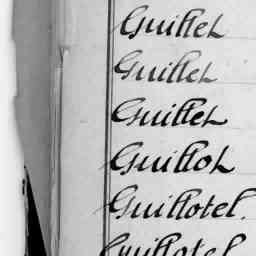 Guillet
Guillet
Guillet
Guillot
Guillotel.
Guillotel